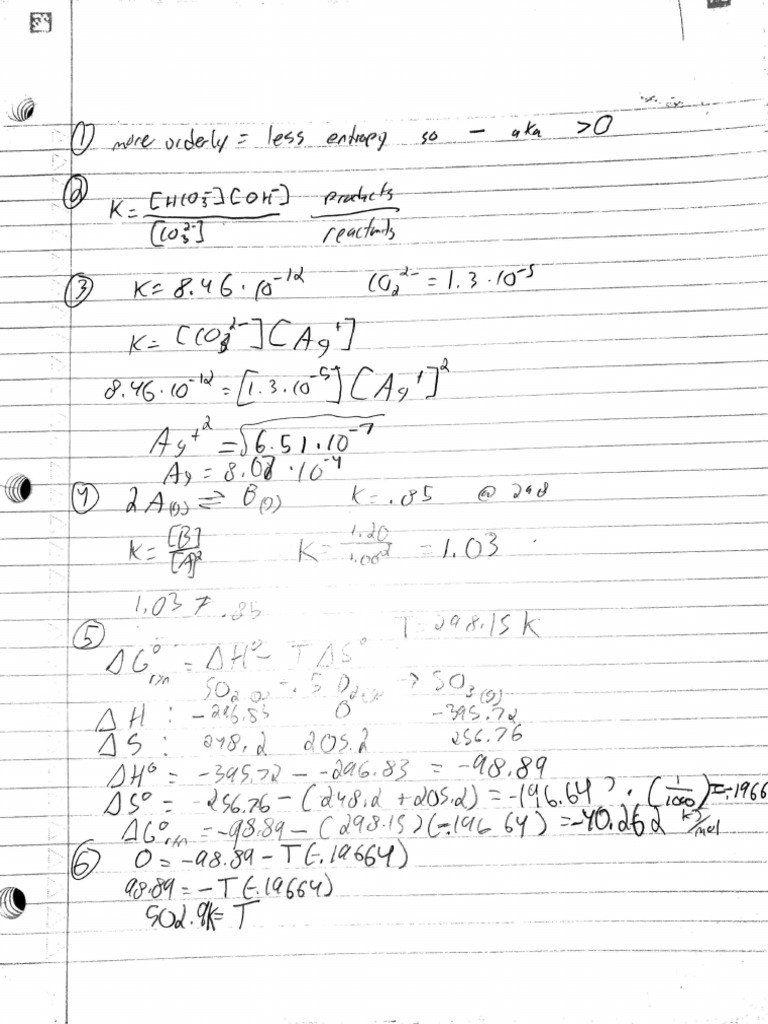 ① more orderly = less entropy so - aka >0
② K = [HCO₃⁻][OH⁻] / [CO₃²⁻] products / reactants
③ K = 8.46·10⁻¹² CO₂²⁻ = 1.3·10⁻⁵
K = [CO₃²⁻][Ag⁺]
8.46·10⁻¹² = [1.3·10⁻⁵][Ag⁺]²
Ag⁺² = √6.51·10⁻⁷
Ag = 8.07·10⁻⁴
④ 2A(g) ⇌ B(g) K = .85 @ 298
K = [B] / [A]² K = 1.20 / 1.08² = 1.03
1.03 ≠ .85
⑤ T = 298.15 K
ΔG°rxn = ΔH° - TΔS°
SO₂(g) + .5 O₂(g) → SO₃(g)
ΔH : -296.83 0 -395.72
ΔS : 248.2 205.2 256.76
ΔH° = -395.72 - -296.83 = -98.89
ΔS° = 256.76 - (248.2 + 205.2) = -196.64) · (1/1000) = -.1966
ΔG°rxn = -98.89 - (298.15)(-.196 64) = -40.262 kJ/mol
⑥ 0 = -98.89 - T(-.19664)
98.89 = -T(-.19664)
502.9K = T